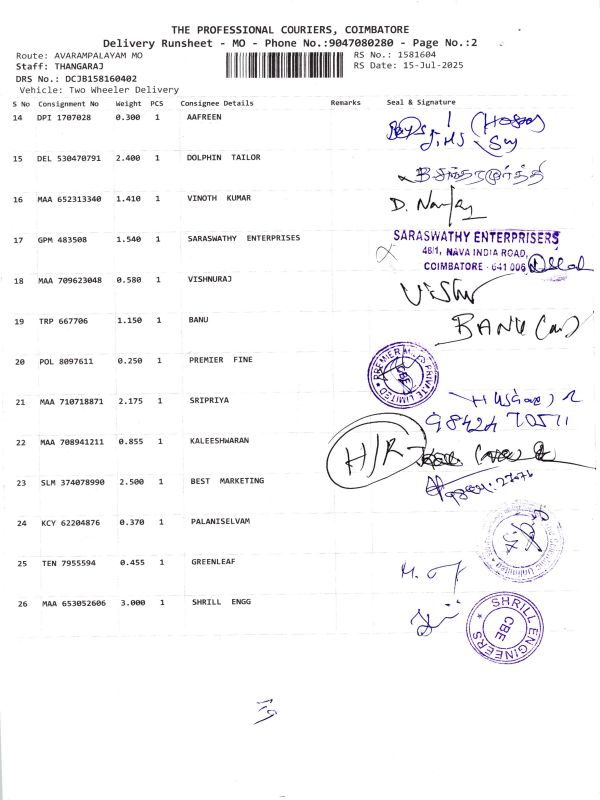 THE PROFESSIONAL COURIERS, COIMBATORE
Delivery Runsheet - MO - Phone No.:9047080280 - Page No.:2
Route: AVARAMPALAYAM MO RS No.: 1581604
Staff: THANGARAJ RS Date: 15-Jul-2025
DRS No.: DCJB158160402
Vehicle: Two Wheeler Delivery
S No Consignment No Weight PCS Consignee Details Remarks Seal & Signature
14 DPI 1707028 0.300 1 AAFREEN
15 DEL 530470791 2.400 1 DOLPHIN TAILOR
16 MAA 652313340 1.410 1 VINOTH KUMAR
D.
17 GPM 483508 1.540 1 SARASWATHY ENTERPRISES
SARASWATHY ENTERPRISERS
48/1, NAVA INDIA ROAD,
COIMBATORE - 641 006
18 MAA 709623048 0.580 1 VISHNURAJ
19 TRP 667706 1.150 1 BANU
BANU
20 POL 8097611 0.250 1 PREMIER FINE
PRIVATE LIMITED
CBE
21 MAA 710718871 2.175 1 SRIPRIYA
98424 70511
22 MAA 708941211 0.855 1 KALEESHWARAN
H/R
23 SLM 374078990 2.500 1 BEST MARKETING
24 KCY 62204876 0.370 1 PALANISELVAM
25 TEN 7955594 0.455 1 GREENLEAF
26 MAA 653052606 3.000 1 SHRILL ENGG
SHRILL ENGINEERS
CBE